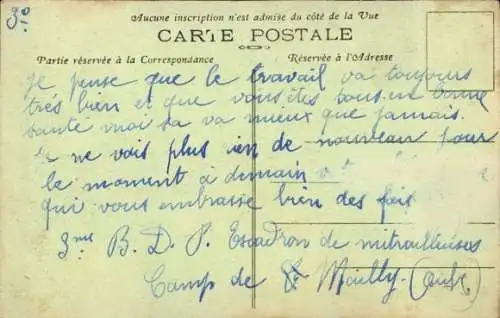 3°
Aucune inscription n'est admise du côté de la Vue
CARTE POSTALE
Partie réservée à la Correspondance
Réservée à l'Adresse
Je pense que le travail va toujours
très bien et que vous êtes tous en bonne
santé moi sa va mieux que jamais.
Je ne vois plus rien de nouveau pour
le moment à demain
qui vous embrasse bien des fois
3me B. D. P. Escadron de mitrailleuses
Camp de Mailly (Aube)